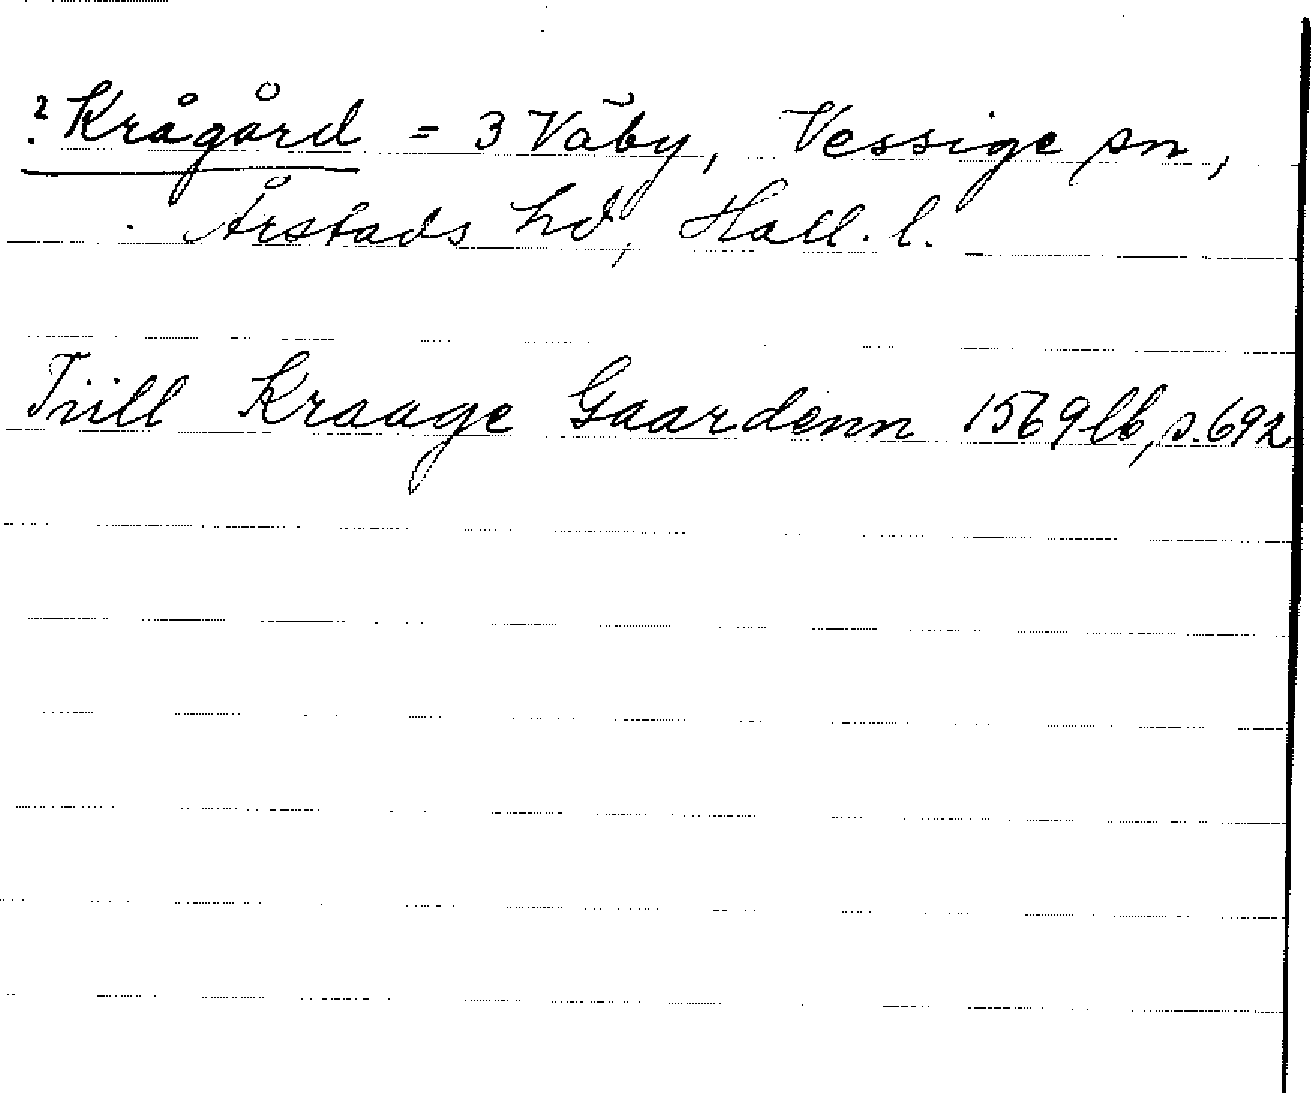 ? Krågård = 3 Väby, Vessige sn,
Årstads hd, Hall. l.
Tiill Kraage Gaardenn 1569 lb, s. 692